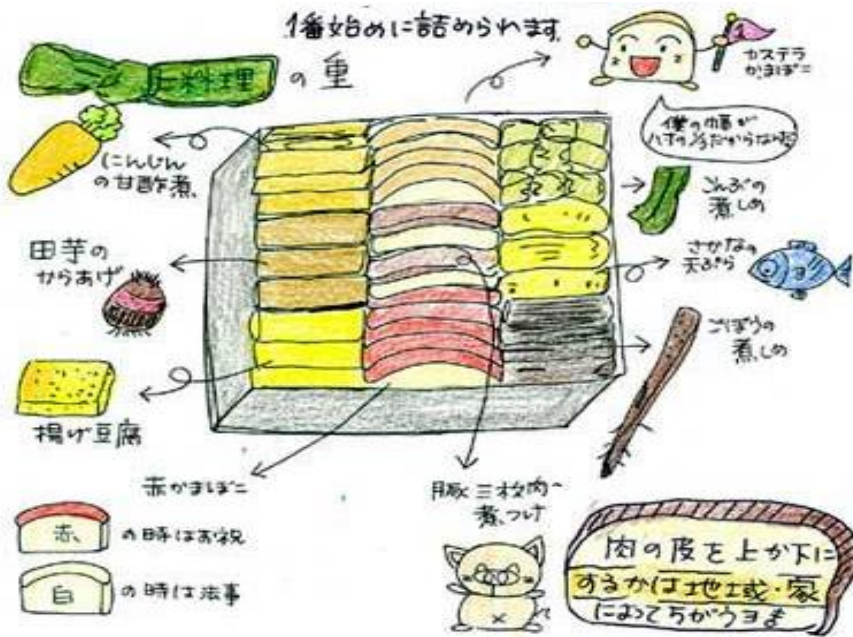 1番始めに詰められます
お料理の重
カステラ
かまぼこ
僕の幅が
ハコの1/3だからなんだ
にんじん
の甘酢煮
こんぶの
煮しめ
田芋の
からあげ
さかなの
天ぷら
ごぼうの
煮しめ
揚げ豆腐
赤かまぼこ
豚三枚肉の
煮つけ
赤 の時はお祝
白 の時は法事
肉の皮を上か下に
するかは地域・家
によってちがうヨ